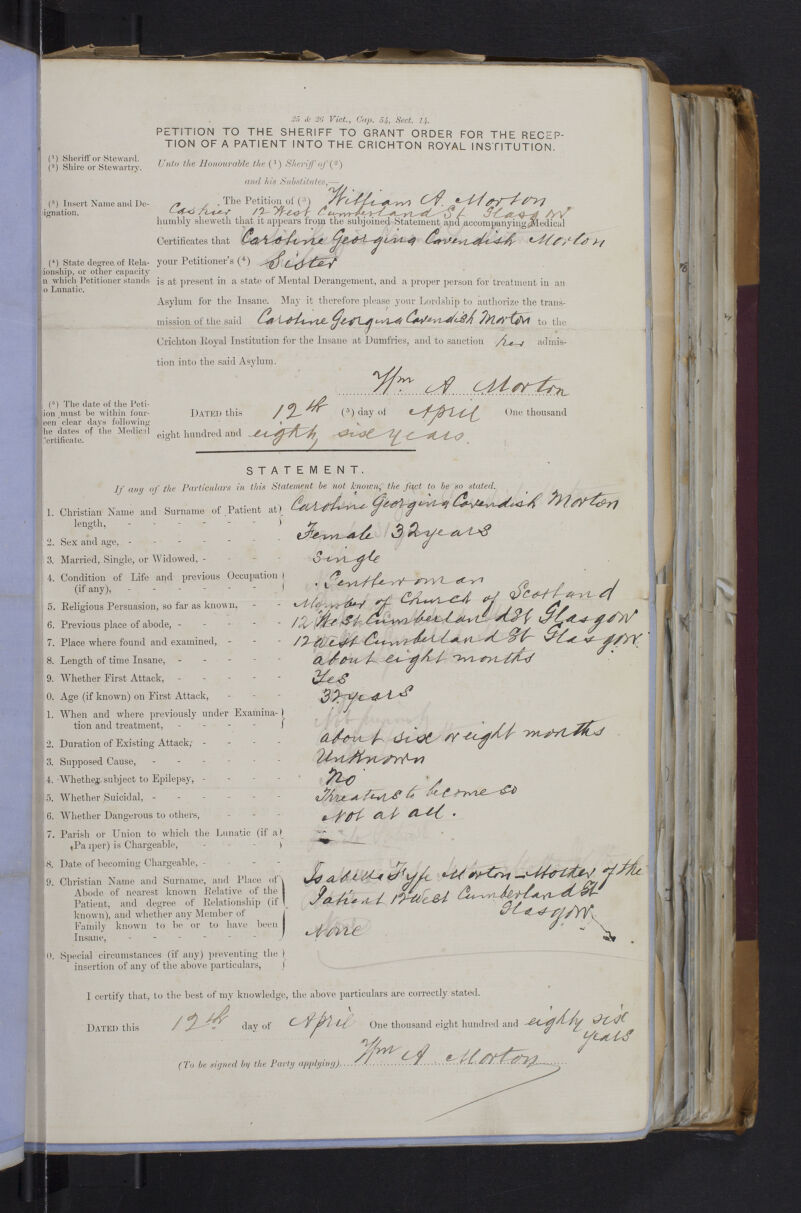 25 & 26 Vict., Cap. 54, Sect. 14.
PETITION TO THE SHERIFF TO GRANT ORDER FOR THE RECEP-
TION OF A PATIENT INTO THE CRICHTON ROYAL INSTITUTION.
(1) Sheriff or Steward.
(2) Shire or Stewartry.
Unto the Honourable the (1) Sheriff of (2)
and his Substitutes,—
(3) Insert Name and De-
signation.
The Petition of (3) William A. Morton
Cashier 12 West Cumberland St Glasgow
humbly sheweth that it appears from the subjoined Statement and accompanying Medical
Certificates that Caroline Georgina Cavendish Morton
(4) State degree of Rela-
ionship, or other capacity
n which Petitioner stands
o Lunatic.
your Petitioner's (4) Sister
is at present in a state of Mental Derangement, and a proper person for treatment in an
Asylum for the Insane. May it therefore please your Lordship to authorize the trans-
mission of the said Caroline Georgina Cavendish Morton to the
Crichton Royal Institution for the Insane at Dumfries, and to sanction her admis-
tion into the said Asylum.
Wm A Morton
(5) The date of the Peti-
ion must be within four-
een clear days following
he dates of the Medical
Certificate.
DATED this 12th (5) day of April One thousand
eight hundred and eighty six years.
STATEMENT.
If any of the Particulars in this Statement be not known, the fact to be so stated.
1. Christian Name and Surname of Patient at length, - Caroline Georgina Cavendish Morton
2. Sex and age, - Female 32 years
3. Married, Single, or Widowed, - Single
4. Condition of Life and previous Occupation (if any), - Gentlewoman
5. Religious Persuasion, so far as known, - Member of Church of Scotland
6. Previous place of abode, - 12 West Cumberland St Glasgow
7. Place where found and examined, - 12 West Cumberland St Glasgow
8. Length of time Insane, - about eight months
9. Whether First Attack, - Yes
0. Age (if known) on First Attack, - 32 years
1. When and where previously under Examina-
tion and treatment, -
2. Duration of Existing Attack, - about six or eight months
3. Supposed Cause, - Unknown
4. Whether subject to Epilepsy, - No
5. Whether Suicidal, - Threatens to become so
6. Whether Dangerous to others, - Not at all.
7. Parish or Union to which the Lunatic (if a
Pauper) is Chargeable, -
8. Date of becoming Chargeable, -
9. Christian Name and Surname, and Place of
Abode of nearest known Relative of the
Patient, and degree of Relationship (if
known), and whether any Member of
Family known to be or to have been
Insane, -
Isabella Fyfe Morton - Mother of the
Patient 12 West Cumberland St
Glasgow
None
0. Special circumstances (if any) preventing the
insertion of any of the above particulars,
I certify that, to the best of my knowledge, the above particulars are correctly stated.
DATED this 12th day of April One thousand eight hundred and eighty six
years
(To be signed by the Party applying) Wm A Morton